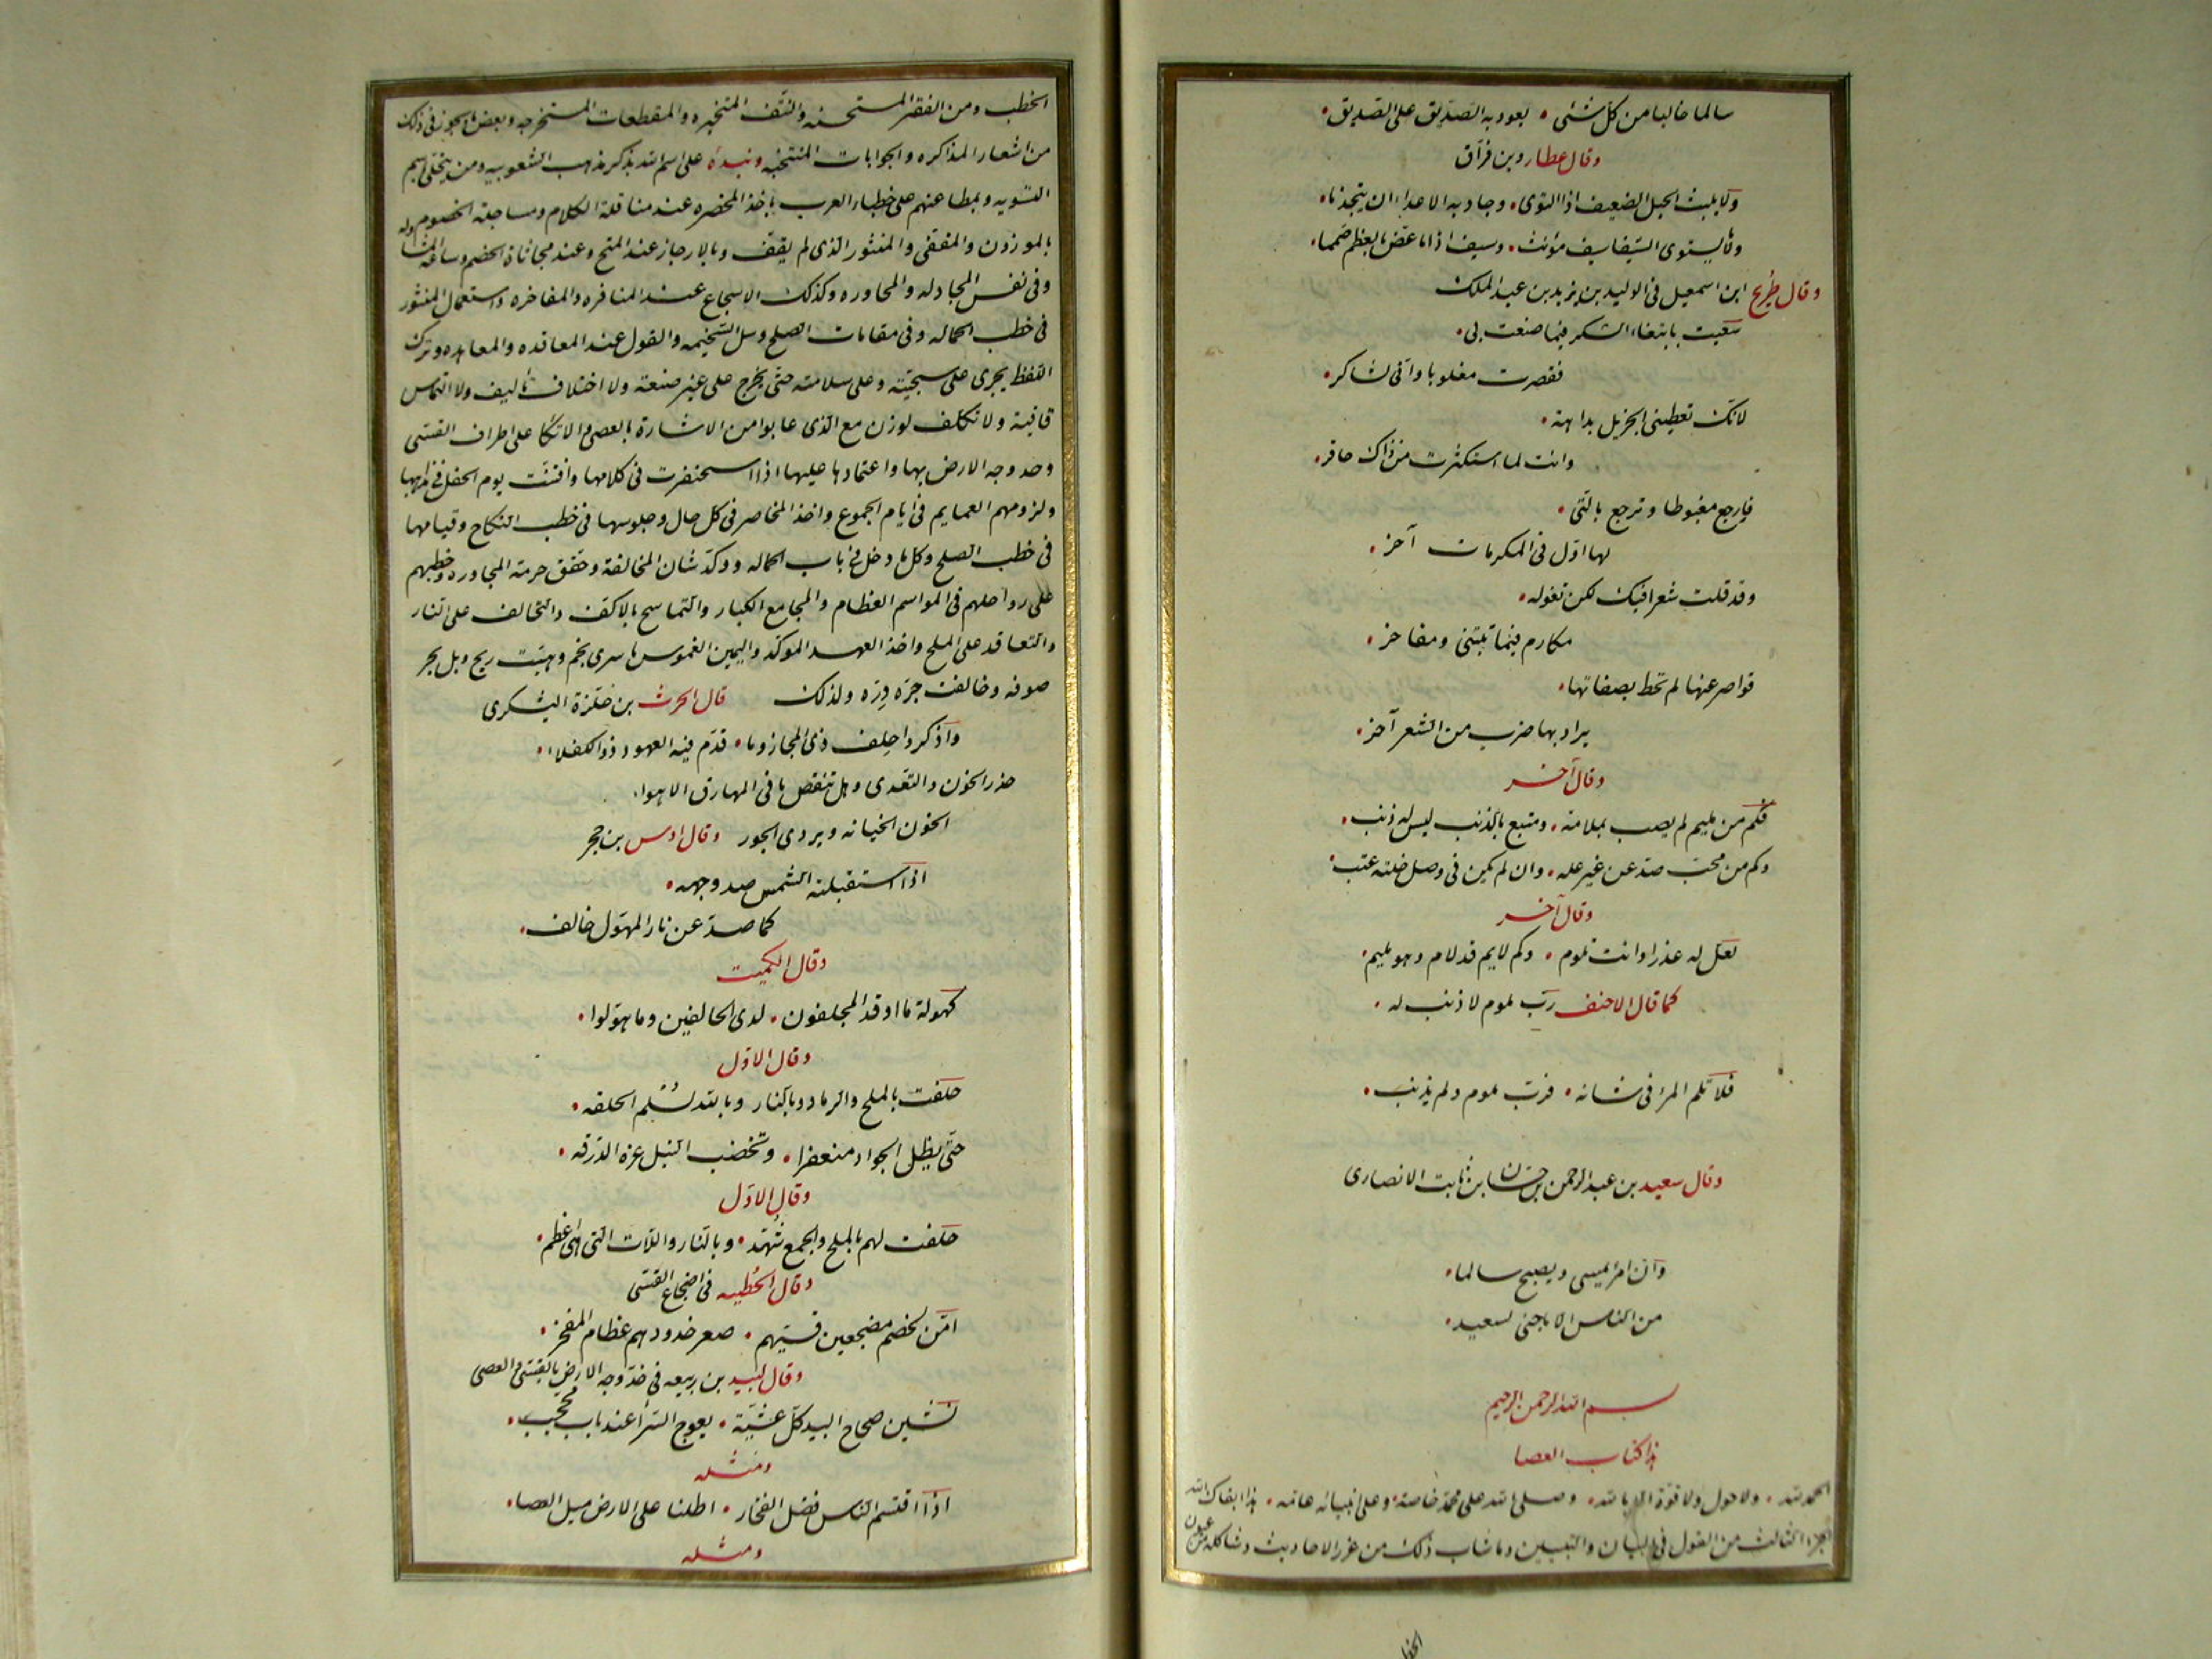 سالما خاليا من كل شئى • يعود به الصديق على الصديق •
وقال عطارد بن قرآن
ولا يلبث الحبل الضعيف اذا التوى • وجاذبه الاعداء ان يتجذما •
وما يستوى السيفان سيف مؤنث • وسيف اذا ما عض بالعظم صمما •
وقال طريح ابن اسمعيل فى الوليد بن يزيد بن عبد الملك
سعيت بابتغاء الشكر فيما صنعت لى •
فقصرت مغلوبا وانى لشاكر •
لانك تعطينى الجزيل بداهة •
وانت لما استكثرت من ذاك حاقر •
فارجع مغبوطا وترجع بالتى •
لها اول فى المكرمات آخر •
وقد قلت شعرا فيك لكن تقوله •
مكارم فيما تبتنى ومفاخر •
قواصر عنها لم تحط بصفاتها •
يراد بها ضرب من الشعر آخر •
وقال آخر
فكم من مليم لم يصب بملامة • ومتبع بالذنب ليس له ذنب •
وكم من محب صد عن غير علة • وان لم يكن فى وصل خلته عتب •
وقال آخر
لعل له عذرا وانت تلوم • وكم لايم قد لام وهو مليم •
كما قال الاحنف رب ملوم لا ذنب له •
فلا تلم المرء فى شانه • فرب ملوم ولم يذنب •
وقال سعيد بن عبد الرحمن بن حسان بن ثابت الانصارى
وان امرا يمسى ويصبح سالما •
من الناس الا ما جنى لسعيد •
بسم الله الرحمن الرحيم
هذا كتاب العصا
الحمد لله • ولا حول ولا قوة الا بالله • وصلى الله على محمد خاصة • وعلى انبيائه عامة • هذا ابقاك الله
الجزء الثالث من القول فى البيان والتبيين وما شاب ذلك من غرر الاحاديث وشاكله من عيون
الخطب
الخطب ومن الفقر المستحسنه والنتف المتخيره والمقطعات المستخرجه وبعض ما يجوز فى ذلك
من اشعار المذاكره والجوابات المنتخبه ونبدأ على اسم الله بذكر مذهب الشعوبيه ومن يتحلى باسم
التسويه وبمطاعنهم على خطباء العرب باخذ المخصره عند مناقلة الكلام ومساجلة الخصوم
بالموزون والمقفى والمنثور الذى لم يقف وبالارجاز عند المتح وعند مجاثاة الخصم وساعة
وفى نفس المجادله والمحاوره وكذلك الاسجاع عند المنافره والمفاخره واستعمال المنثور
فى خطب الحماله وفى مقامات الصلح وسل السخيمه والقول عند المعاقده والمعاهده وترك
اللفظ يجرى على سجيته وعلى سلامته حتى يخرج على غير صنعة ولا اختلاف تاليف ولا التماس
قافية ولا تكلف لوزن مع الذى عابوا من الاشارة بالعصى والاتكا على اطراف القسى
وخد وجه الارض بها واعتمادها عليها اذا اسحنفرت فى كلامها وافتنت يوم الحفل فى مذاهبها
ولزومهم العمايم فى ايام الجموع واخذ المخاصر فى كل حال وجلوسها فى خطب النكاح وقيامها
فى خطب الصلح وكل ما دخل فى باب الحماله ووكد شان المخالفة وحقق حرمة المجاوره وخطبهم
على رواحلهم فى المواسم العظام والمجامع الكبار والتماسح بالاكف والتحالف على النار
والتعاقد على الملح واخذ العهد الموكد واليمين الغموس ما سرى نجم وهبت ريح وبل بحر
صوفه وخالفت جره دره ولذلك قال الحرث بن حلزة اليشكرى
واذكروا حلف ذى المجاز وما • قدم فيه العهود ذو الكفلاء •
حذر الخون والتعدى وهل تنقض ما فى المهارق الاهواء.
الخون الخيانه ويروى الجور وقال اوس بن حجر
اذا استقبلته الشمس صد وجهه •
كما صد عن نار المهول حالف •
وقال الكميت
كهولة ما اوقد المحلفون • لدى الحالفين وما هولوا •
وقال الاول
حلفت بالملح والرماد وبالنار وبالله نسلم الحلقه •
حتى يظل الجواد منعفرا • وتخضب النبل غرة الدرقه •
وقال الاول
حلفت لهم بالملح والجمع شهد • وبالنار واللات التى هى اعظم •
وقال الحطيه فى اضجاع القسى
امن لخصم مضجعين قسيهم • صعر خدودهم عظام المفخر •
وقال لبيد بن ربيعه فى خد وجه الارض بالقسى والعصى
نشين صحاح البيد كل عشية • بعوج السرا عند باب محجب •
ومثله
اذا اقتسم الناس فضل الفخار • اطلنا على الارض ميل العصا •
ومثله